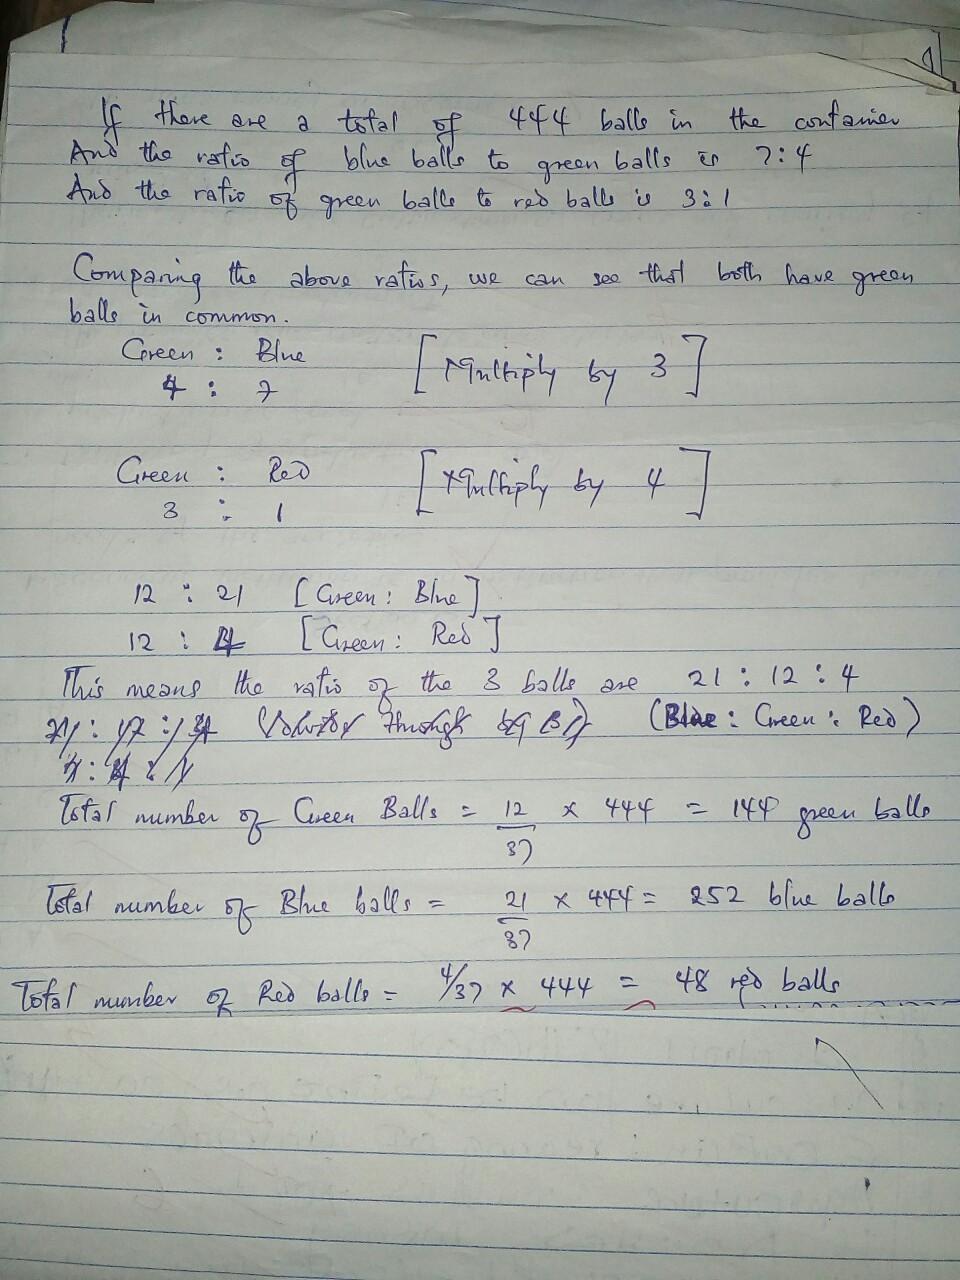 If there are a total of 444 balls in the container
And the ratio of blue balls to green balls is 7:4
And the ratio of green balls to red balls is 3:1
Comparing the above ratios, we can see that both have green
balls in common.
Green : Blue [Multiply by 3]
4 : 7
Green : Red [Multiply by 4]
3 : 1
12 : 21 [Green : Blue]
12 : 4 [Green : Red]
This means the ratio of the 3 balls are 21 : 12 : 4
through by (Blue : Green : Red)
Total number of Green Balls = 12/37 x 444 = 144 green balls
Total number of Blue balls = 21/37 x 444 = 252 blue balls
Total number of Red balls = 4/37 x 444 = 48 red balls